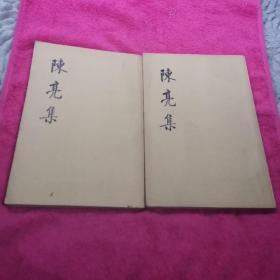 陳亮集
陳亮集